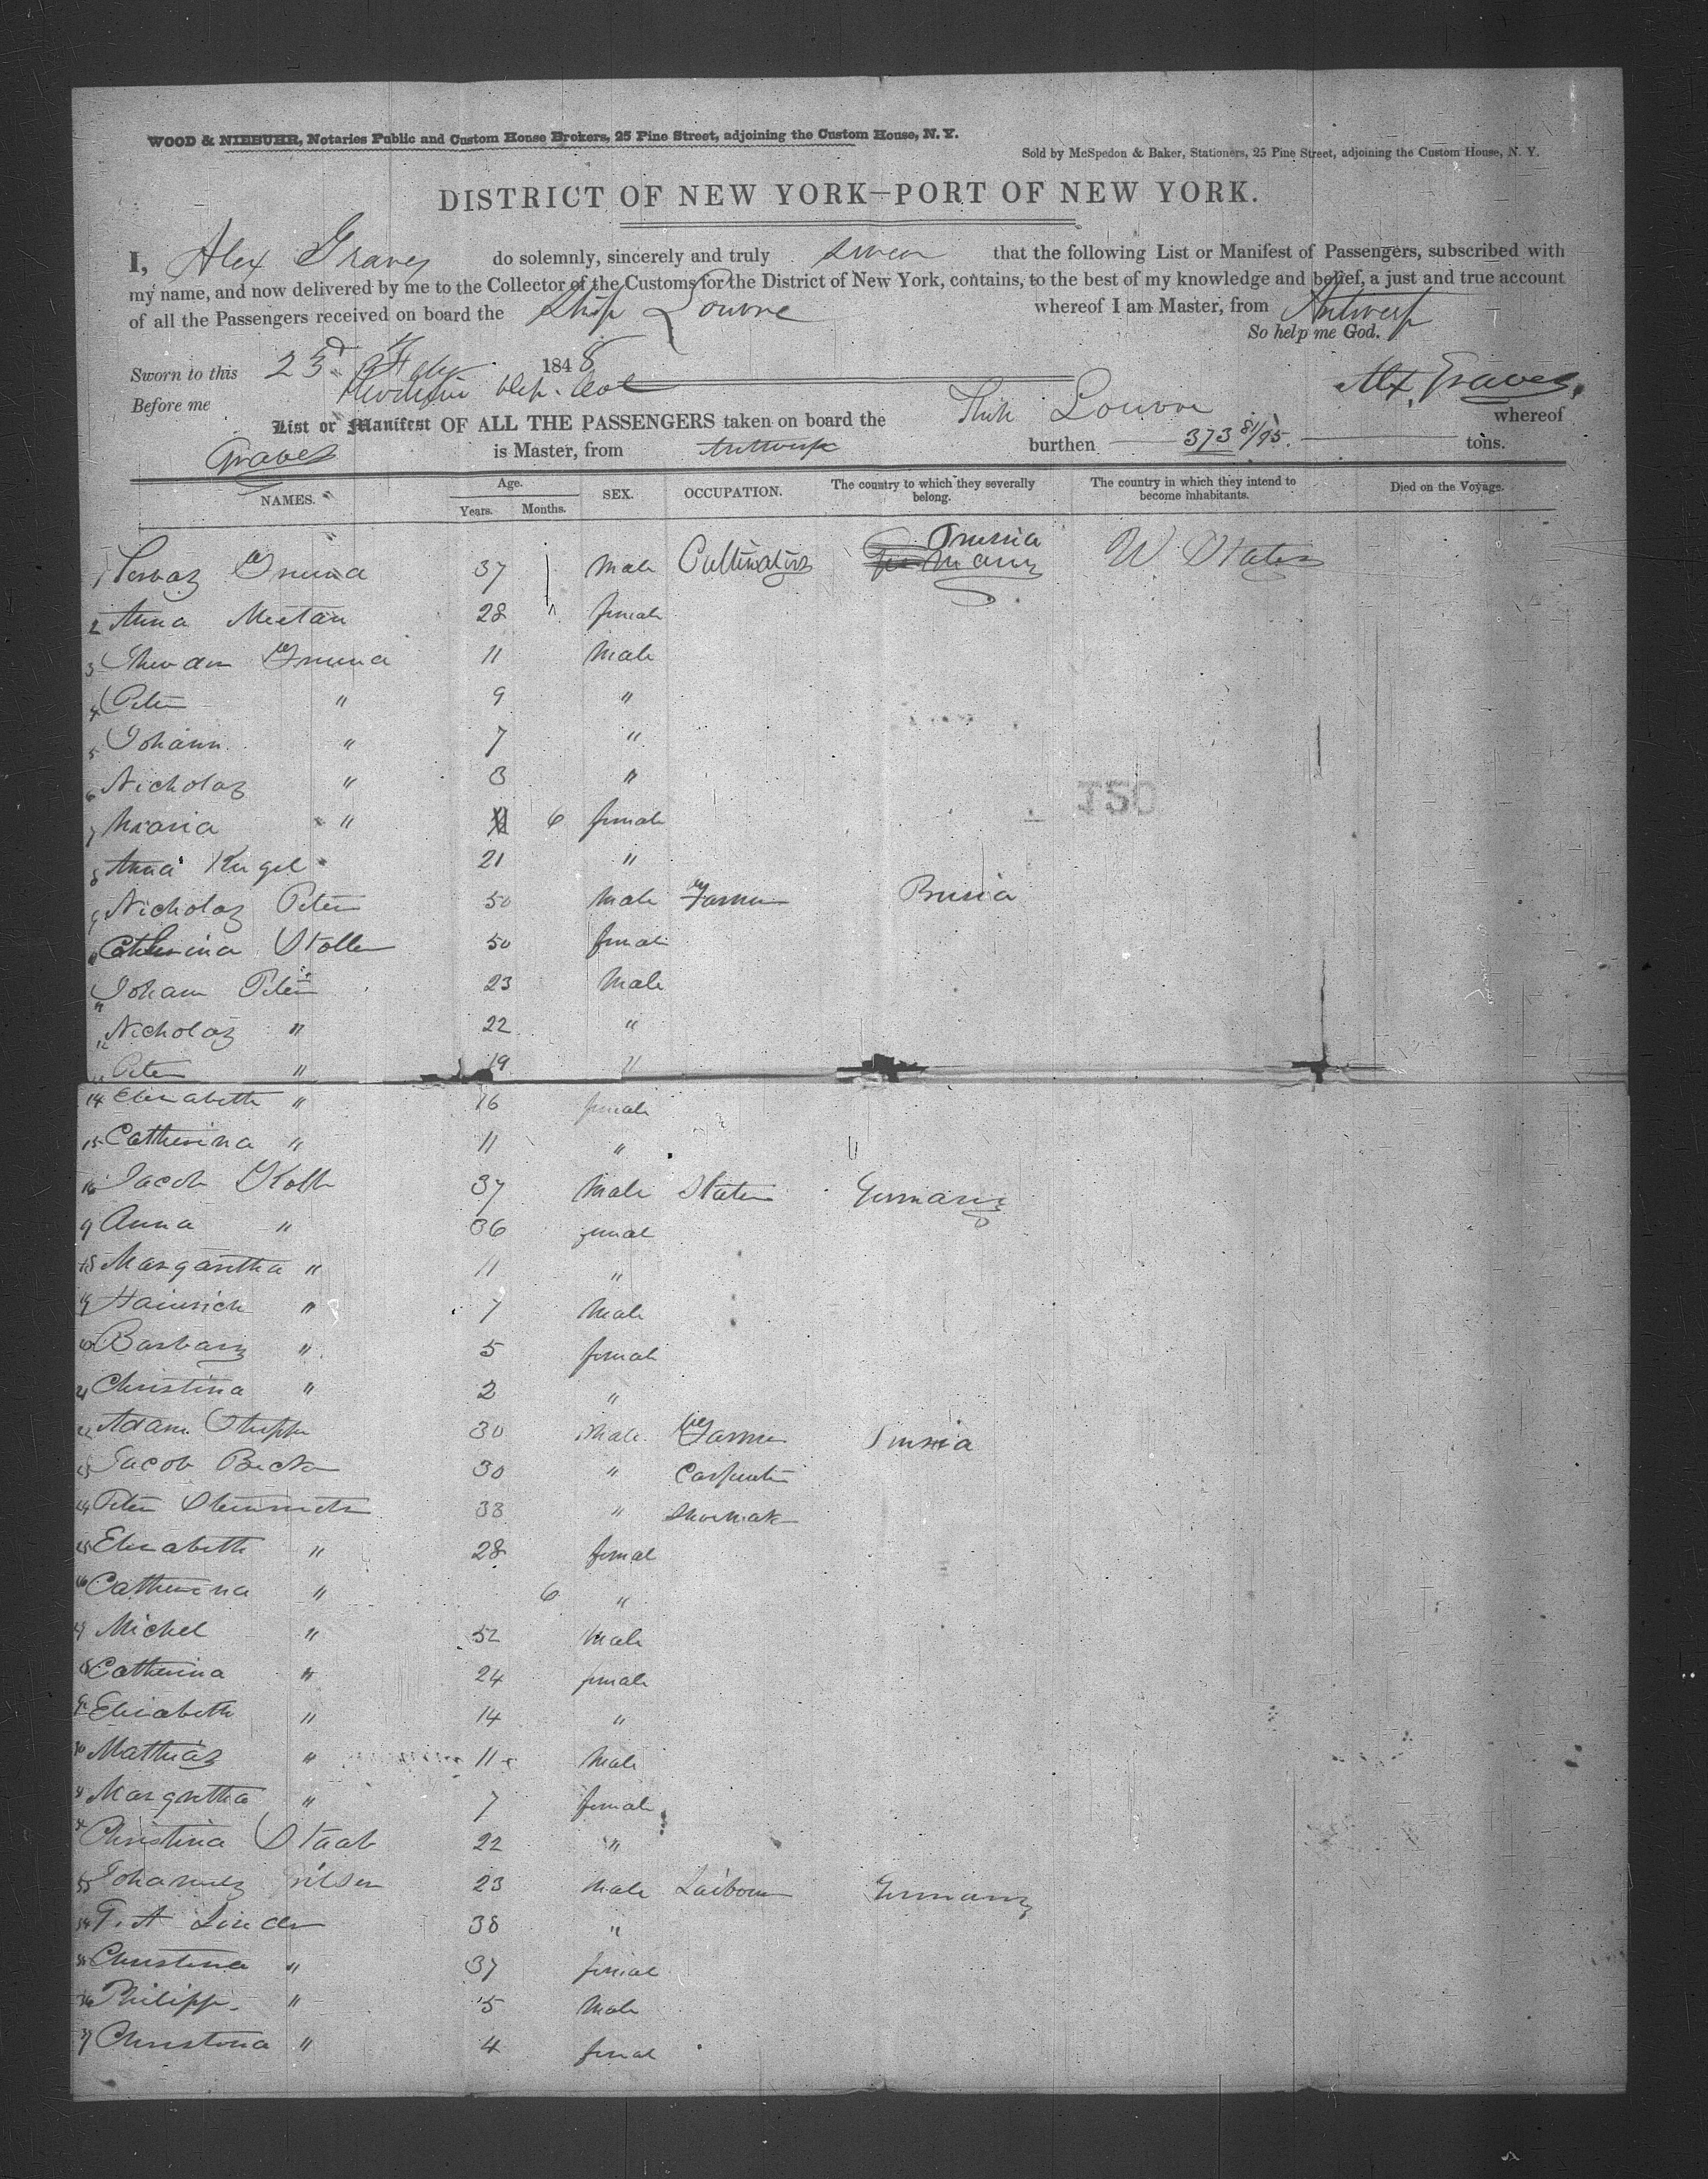 WOOD & NIEBUHR, Notaries Public and Custom House Brokers, 25 Pine Street, adjoining the Custom House, N. Y.
Sold by McSpedon & Baker, Stationers, 25 Pine Street, adjoining the Custom House, N. Y.
DISTRICT OF NEW YORK—PORT OF NEW YORK.
I, Alex Graves do solemnly, sincerely and truly swear that the following List or Manifest of Passengers, subscribed with
my name, and now delivered by me to the Collector of the Customs for the District of New York, contains, to the best of my knowledge and belief, a just and true account
of all the Passengers received on board the Ship Louvre whereof I am Master, from Antwerp
So help me God.
Sworn to this 23d Feby 1848
Before me Dep. Col Alex. Graves
List or Manifest OF ALL THE PASSENGERS taken on board the Ship Louvre whereof
Graves is Master, from Antwerp burthen 373 81/95. tons.
NAMES. Age. Years. Months. SEX. OCCUPATION. The country to which they severally belong. The country in which they intend to become inhabitants. Died on the Voyage.
1 37 Male Prussia U States
2 Anna 28 female
3 11 Male
4 Peter " 9 "
5 Johann " 7 "
6 Nicholas " 3 "
7 Maria " 6 female
8 Anna Kugel 21 "
9 Nicholas Peter 50 Male Farmer Prusia
10 Catherina Stoller 50 female
11 Johann Peter 23 Male
12 Nicholas " 22 "
Peter " 19 "
14 Elisabeth " 16 female
15 Catherina " 11 "
16 Jacob Kolb 37 Male Germany
Anna " 36 female
18 Margaretha " 11 "
19 Heinrich " 7 Male
20 Barbara " 5 female
21 Christina " 2 "
22 Adam 30 Male Farmer Prussia
23 Jacob Becker 30 " Carpenter
24 Peter Steinmetz 33 " Shoemaker
25 Elisabeth " 28 female
26 Catherina " 6 "
27 Michel " 52 Male
28 Catherina " 24 female
29 Elisabeth " 14 "
30 Mathias " 11 Male
31 Margretha " 7 female
32 Christina Staab 22 "
33 Johannes 23 Male Labourer Germany
34 Linder 38 "
35 Christina " 37 female
36 Philipp " 5 Male
37 Christina " 4 female